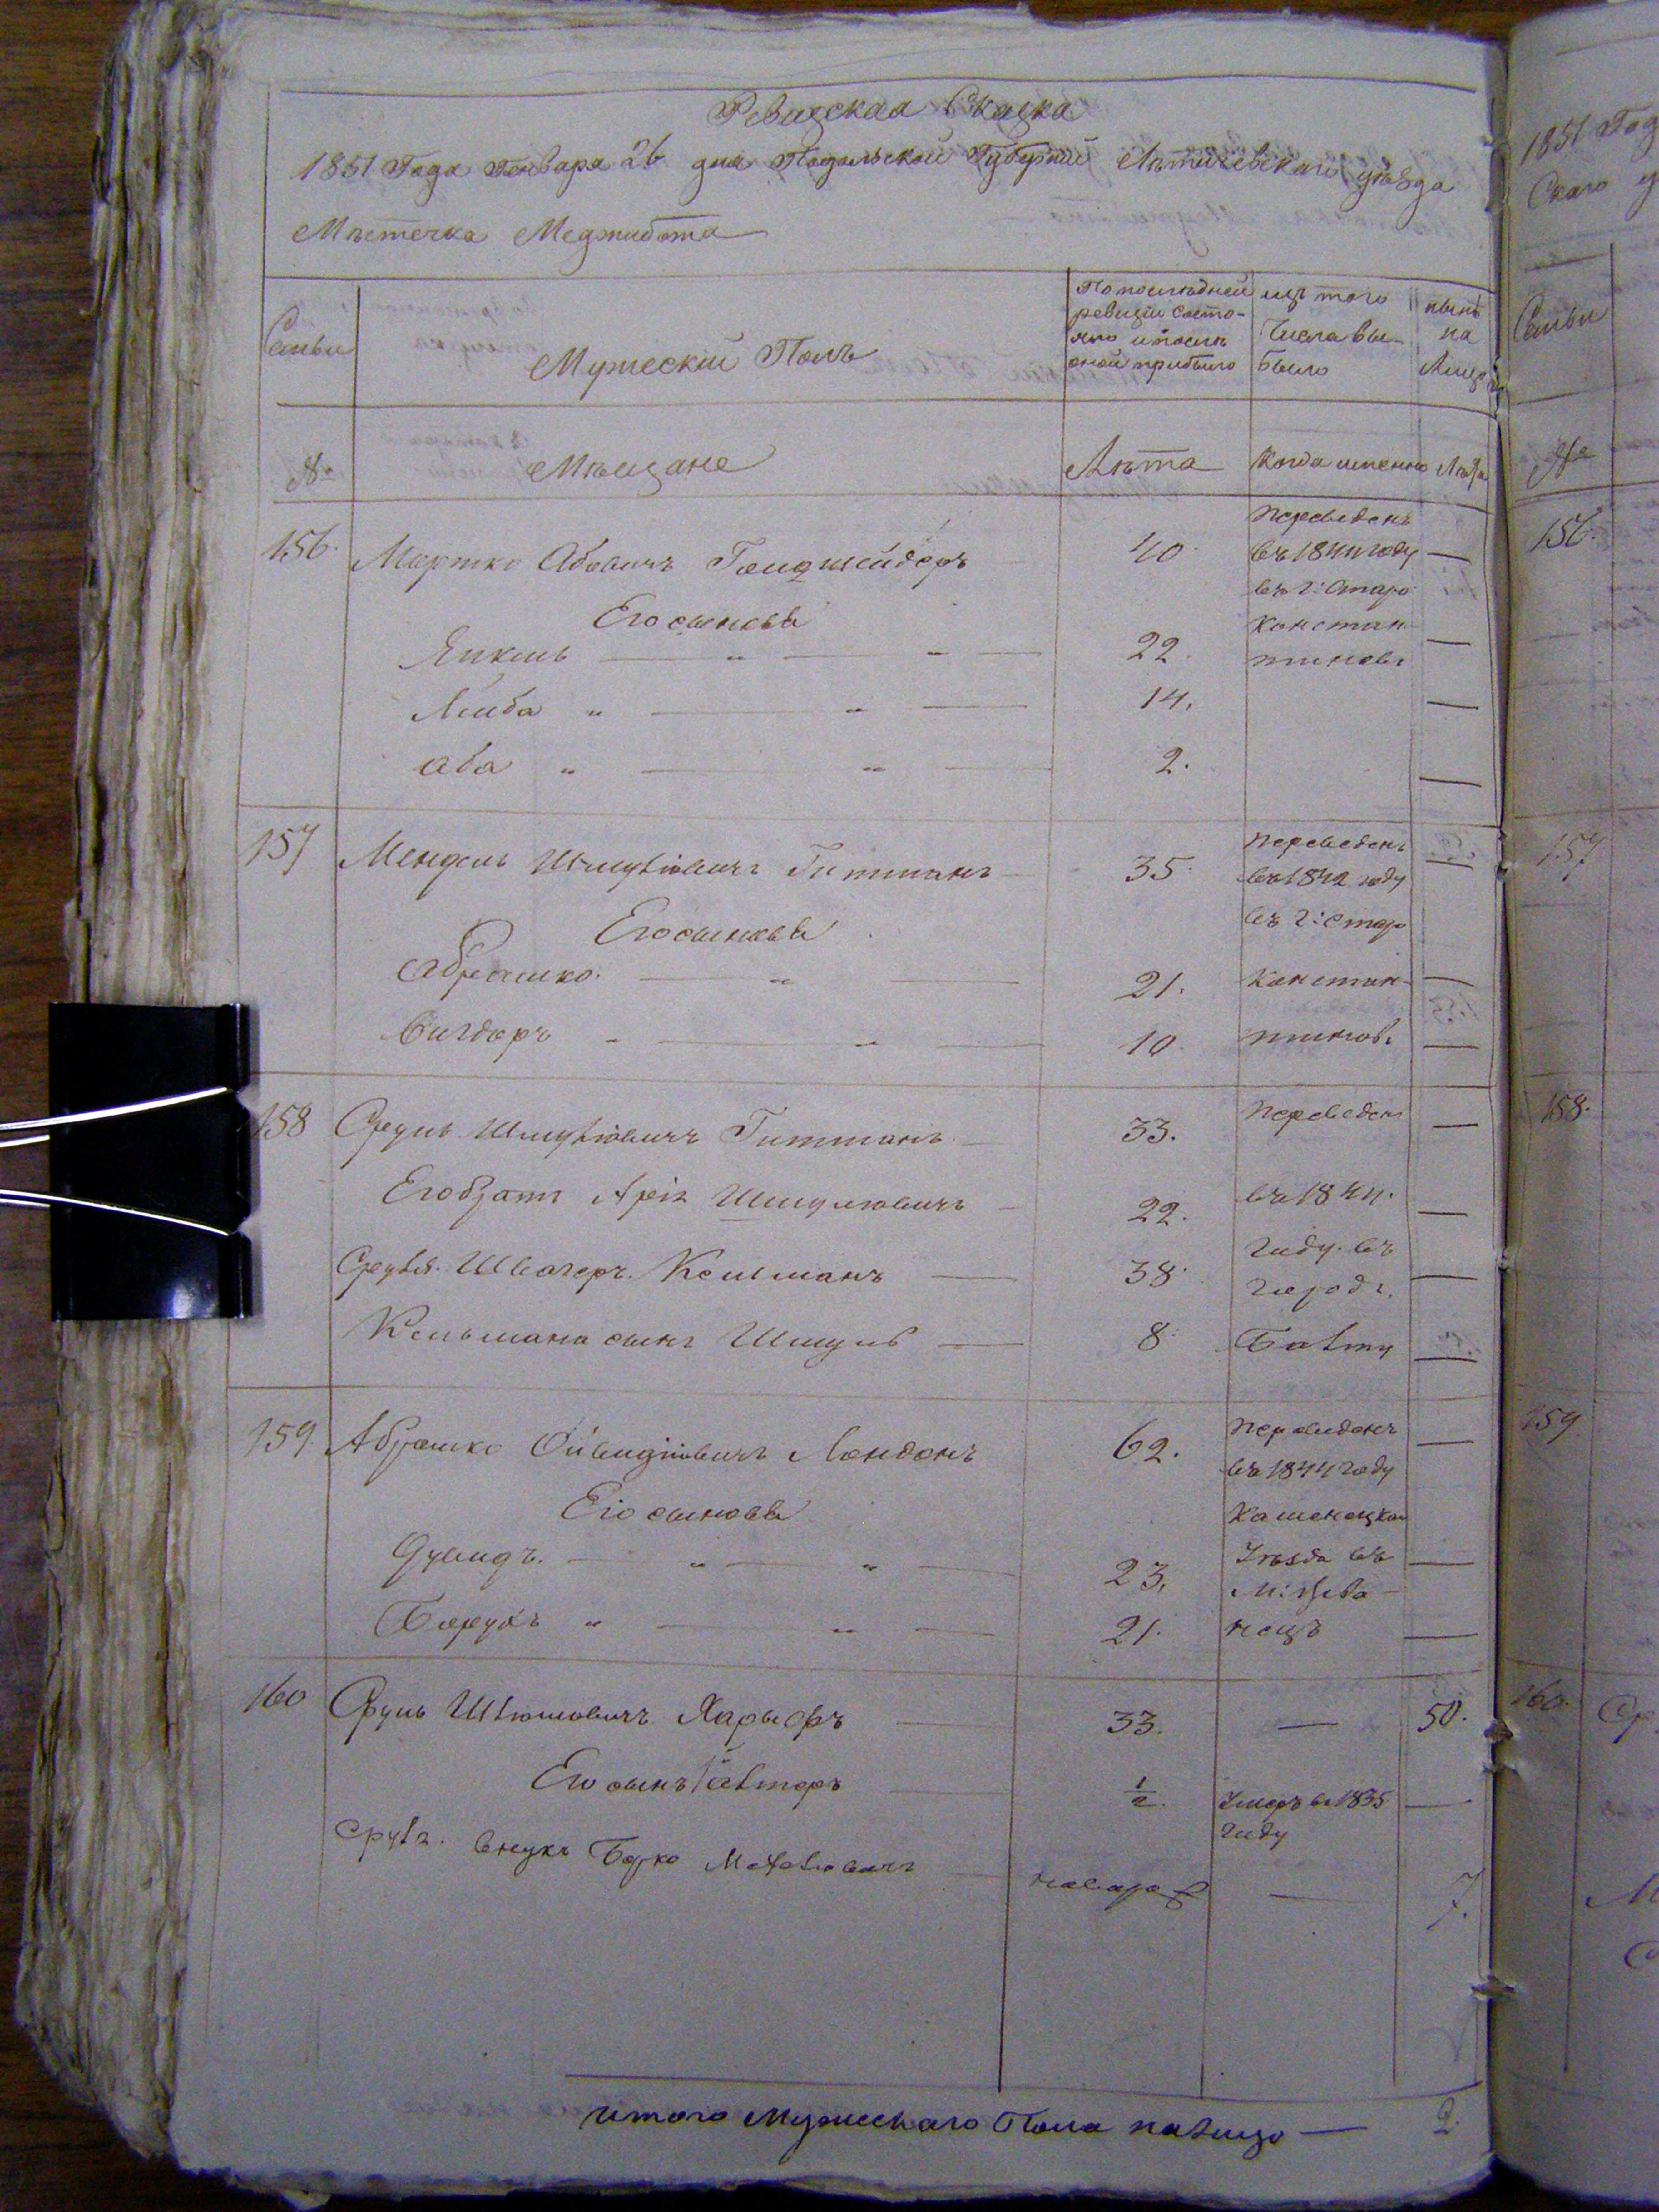 Ревизская Сказка
1851 Года Генваря 26 дня Подольской Губернии Летичевскаго уѣзда
Мѣстечка Меджибожа
Семьи
Мужескій Полъ
По последней ревизіи состояло и после оной прибыло
изъ того Числа выбыло
нынѣ на Лицо
№
Мѣщане
Лѣта
Когда именно
Лѣта
156. Мортко Абовичъ 40. Переведенъ въ 1844 году въ г: Старо Константиновъ —
Его сыновья
Янкель 22. —
Лейба 14. —
Аба 2. —
157 Мендель Шмулiовичъ Гитманъ 35. Переведенъ въ 1842 году въ г: Старо Константиновъ —
Его сыновья
Абрашко 21. —
Вигдоръ 10 —
158 Сруль Шмулiовичъ Гитманъ 33. Переведен въ 1844. году. въ городъ. Балту —
Его братъ Арiя Шмулiовичъ 22. —
Сруля. Швагеръ. Кельманъ 38. —
Кельмана сынъ Шмуль 8. —
159. Абрашко Лондонъ 62. Переведенъ въ 1844 году Каменецкаго Уѣзда въ —
Его сыновья
Дувидъ. 23. —
Борухъ 21. —
160 Сруль Харыфъ 33. — 50.
Его сынъ 1/2. Умеръ въ 1835 году —
Сруля. внукъ Берко — 7.
итого Мужескаго Пола налицо — 2.
1851 Год
Семьи
№
156.
157
158.
159
160.